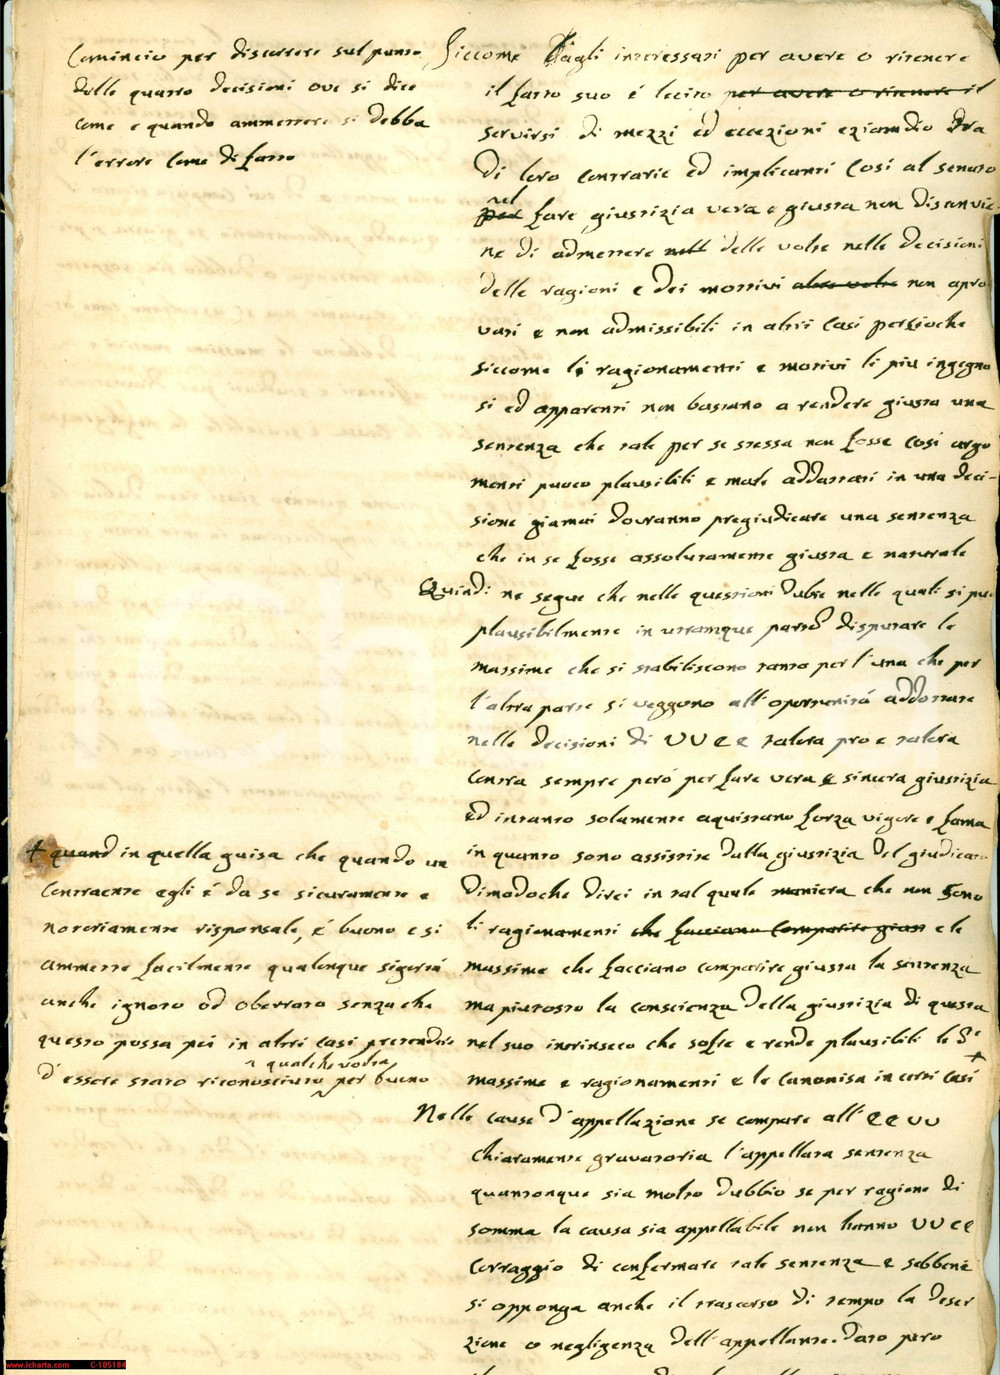 Comincio per discorrere sul punto
delle quatro decisioni ove si dice
come e quando ammettere si debba
l'errore come di fatto
Siccome Dagli interessati per avere o ritenere
il fatto suo é lecito per avere o ritenere il
servirsi di mezzi ed eccezioni eziamdio tra
di loro contrarie ed implicanti Cosí al senato
nel
per fare giustizia vera e giusta non disconvie-
ne di admettere nelle delle volte nelle decisioni
delle ragioni e dei mottivi alte volte non apro
vati e non admissibili in altri casi percioche
siccome li ragionamenti e motivi li piu ingegno
si ed apparenti non bastano a rendere giusta una
sentenza che tale per se stessa non fosse cosí argo
menti puoco plausibili e male addattati in una deci-
sione giamai dovranno pregiudicare una sentenza
che in se fosse assolutamente giusta e naturale
Quindi ne segue che nelle questioni dubie nelle quali si puó
plausibilmente in utramque parte disputare le
massime che si stabiliscono tanto per l'una che per
l'altra parte si veggono all'oportunitá addottate
nelle decisioni di VV EE talora pro e talora
contra sempre peró per fare vera e sincera giustizia
ed intanto solamente aquistano forza vigore e fama
in quanto sono assistite dalla giustizia del giudicato
dimodoche direi in tal quale maniera che non sono
li ragionamenti che facciano comparire giusta e le
massime che facciano comparire giusta la sentenza
ma piutosto la conscienza della giustizia di questa
nel suo intrinseco che sofre e rende plausibili le Se
massime e ragionamenti e le canonisa in certi casi +
+ quand in quella guisa che quando un
contraente egli é da se sicuramente e
notoriamente risponsale, é buono e si
ammette facilmente qualonque sigortá
anche ignoto od oberrato senza che
questo possa poi in altri casi pretendere
qualche volta
d'essere stato riconosciuto per buono
Nelle cause d'appellazione se compare all' EE VV
chiaramente gravatoria l'appellata sentenza
quantonque sia molto dubbio se per ragione di
somma la causa sia appellabile non hanno VV EE
corraggio di confermare tale sentenza e sebbene
si opponga anche il trascorso di tempo la deser
zione o negligenza dell'appellante. Dato peró
www.icharta.com C-105184